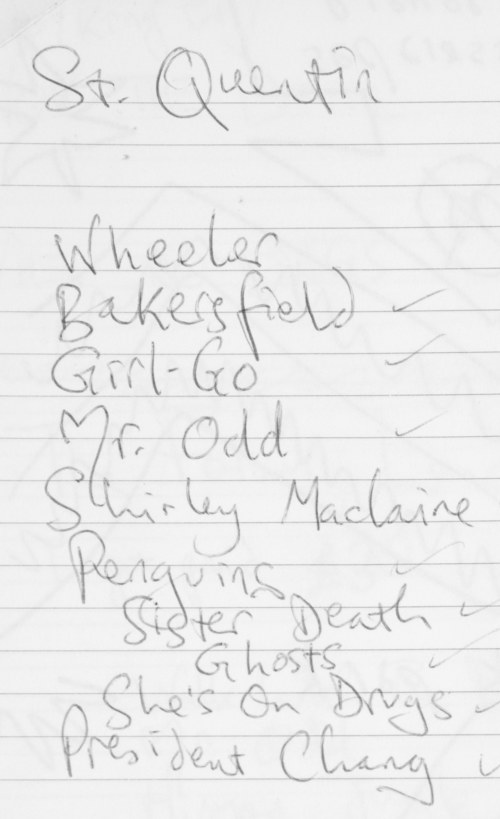 St. Quentin
Wheeler
Bakersfield ✓
Girl-Go ✓
Mr. Odd ✓
Shirley Maclaine
Penguins ✓
Sister Death ✓
Ghosts ✓
She's On Drugs ✓
President Chang ✓